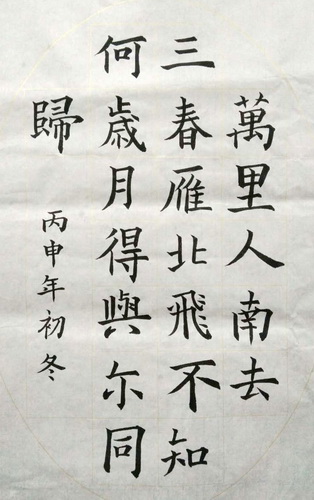 萬里人南去
三春雁北飛不知
何歲月得與尓同
歸
丙申年初冬